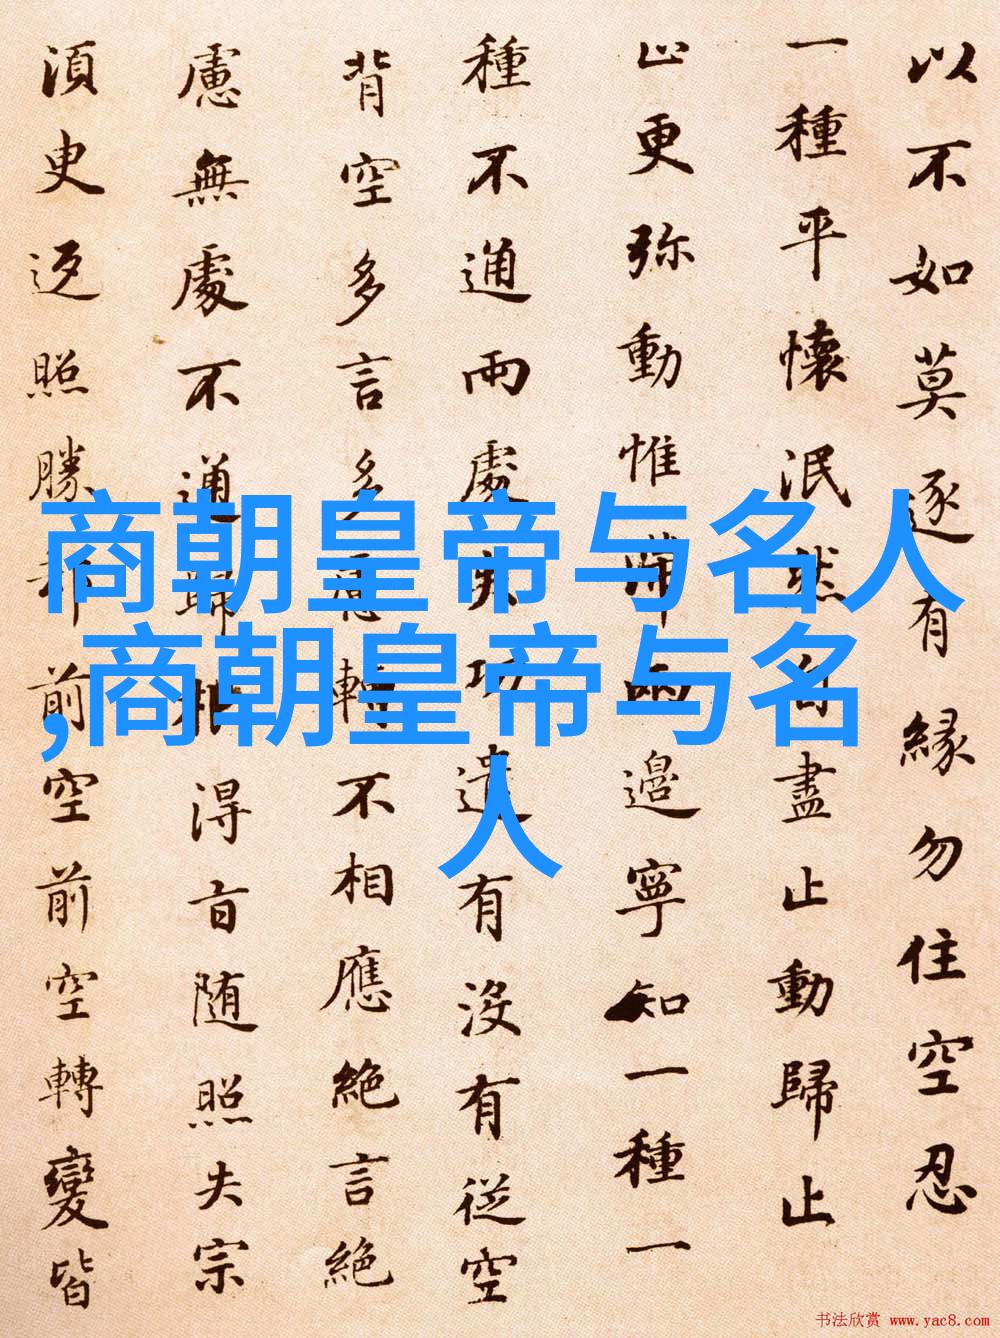 以不如莫逐有緣勿住空忍
一種平懷泯然自盡止動歸止
止更弥動惟滞兩邊寧知一種一
種不通兩處失功遣有沒有從空
背空多言多慮轉不相應絶言絶
慮無處不通歸根得旨随照失宗
須臾返照勝却前空前空轉變皆
商朝皇帝与名人
,商朝皇帝与名
人
书法欣赏 www.yac8.com